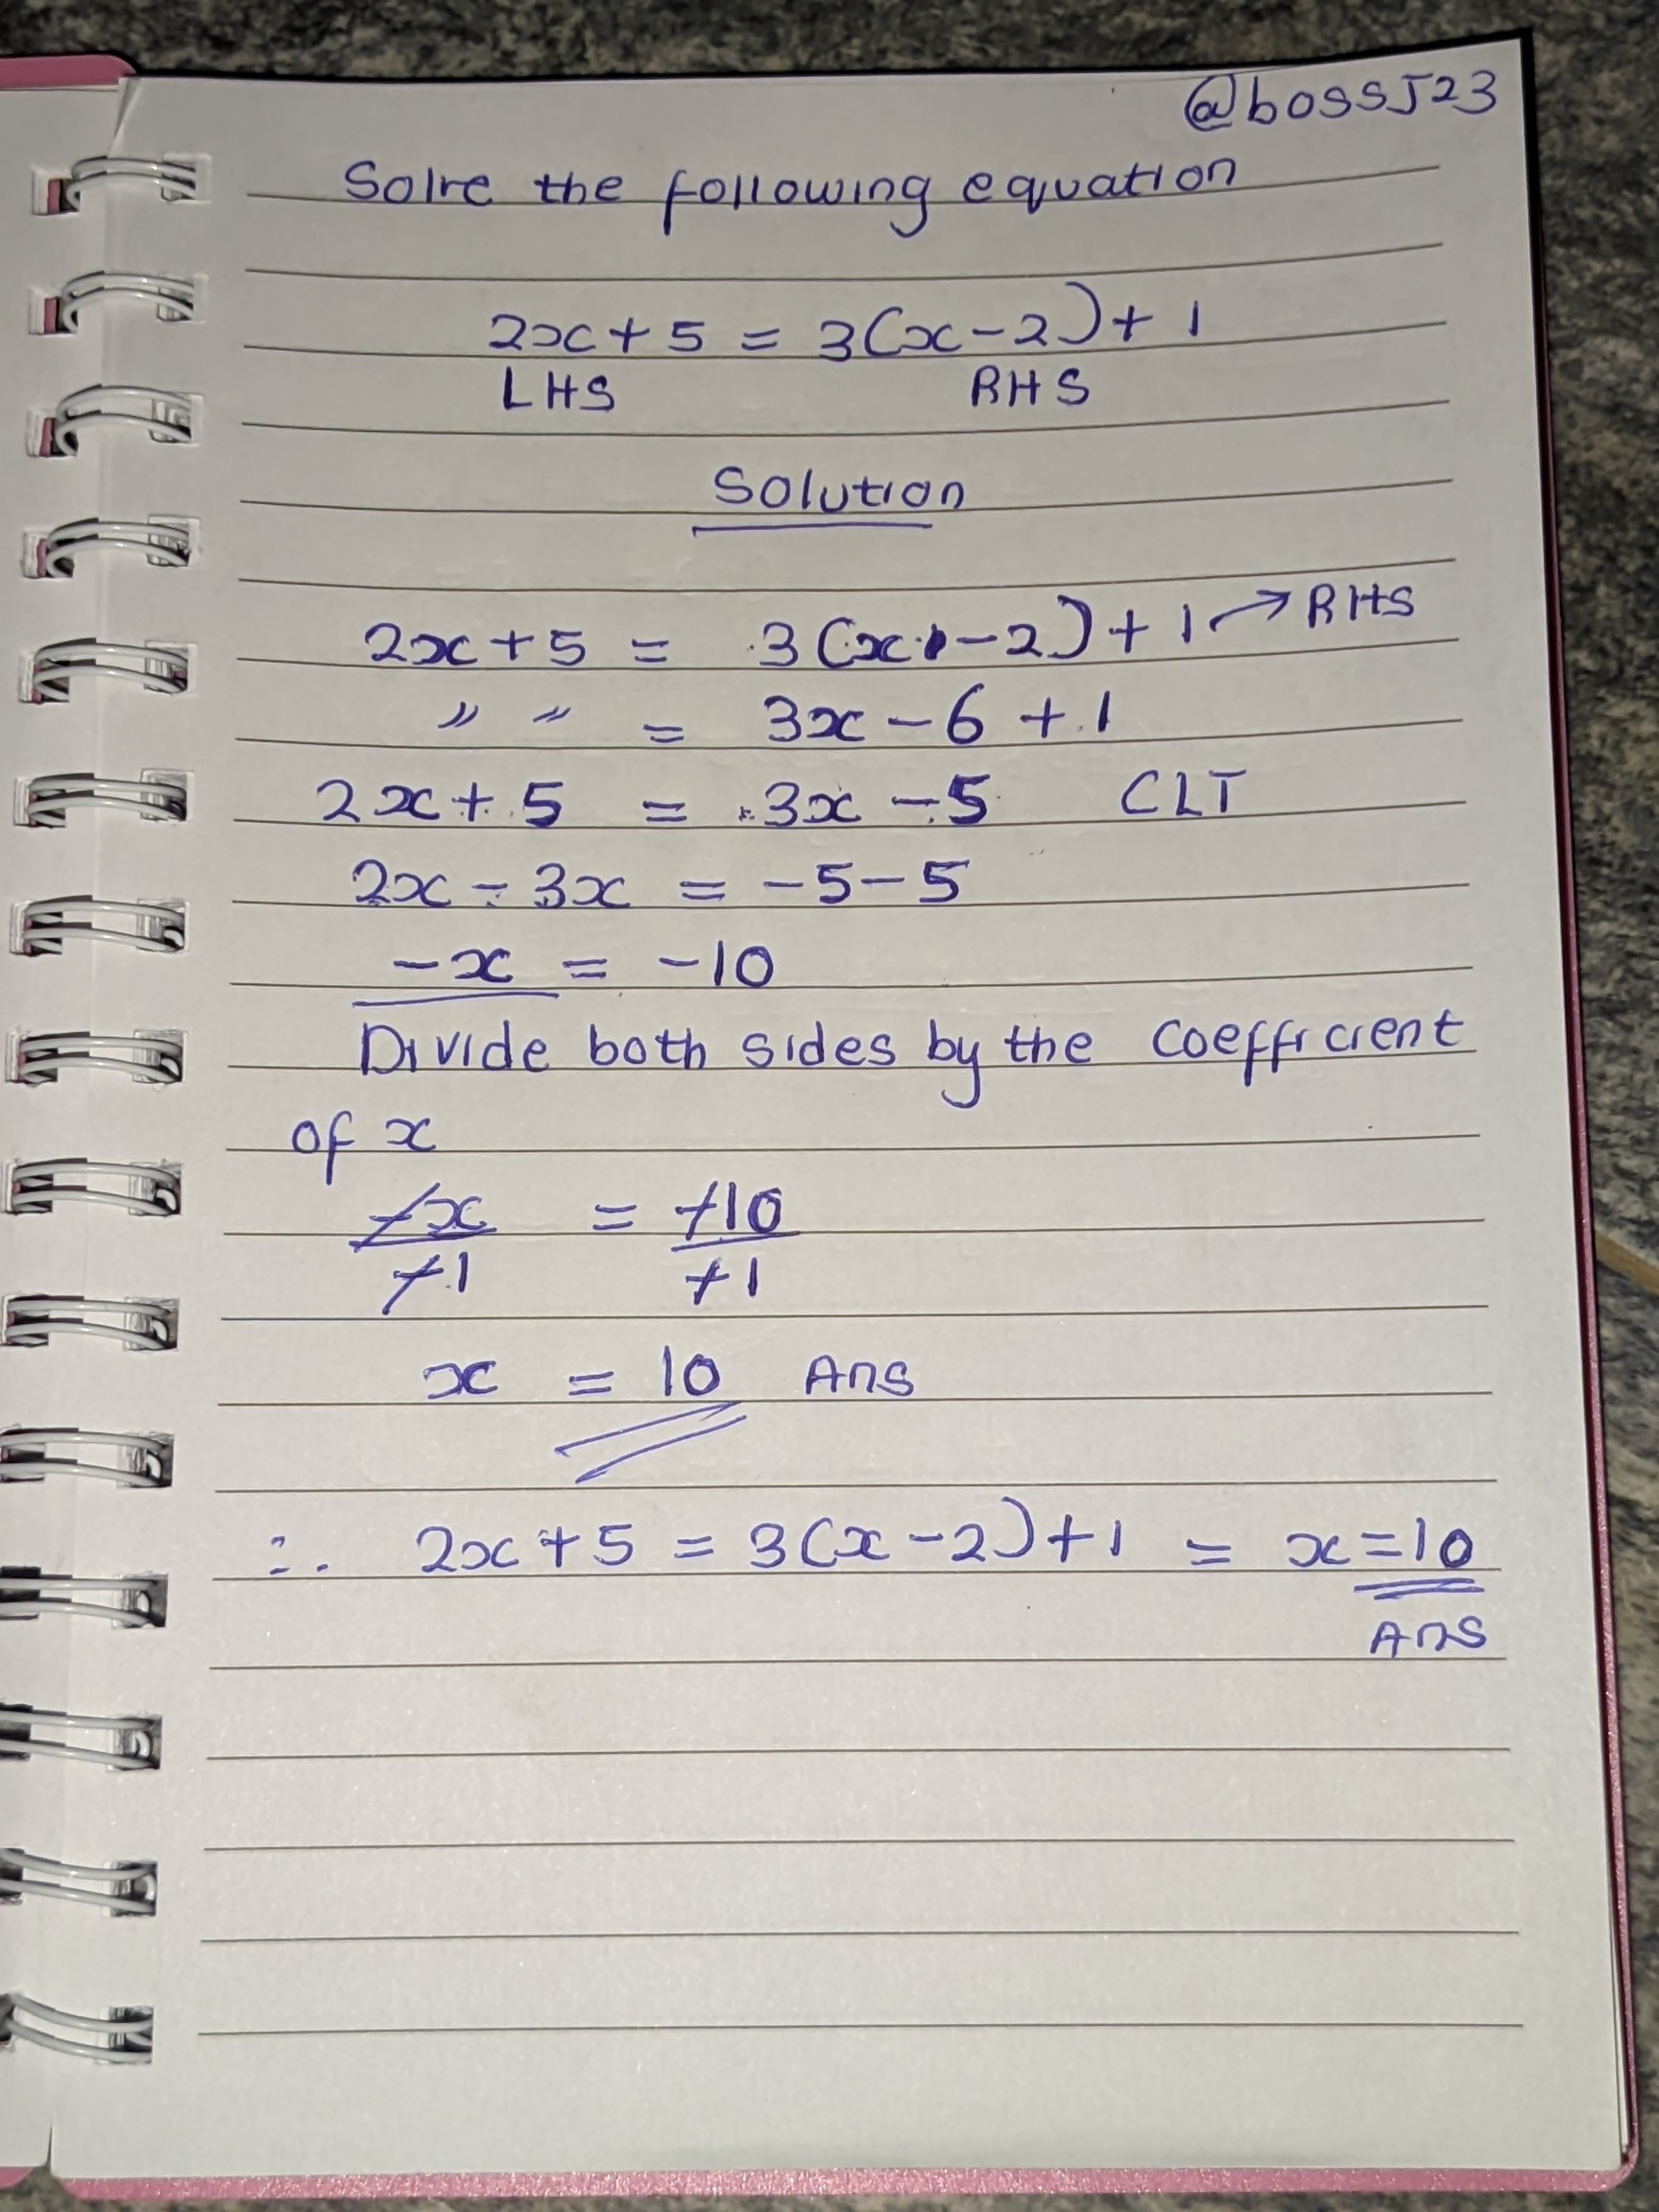 @bossJ23
Solve the following equation
2x + 5 = 3(x - 2) + 1
LHS RHS
Solution
2x + 5 = 3(x - 2) + 1 → RHS
〃 〃 = 3x - 6 + 1
2x + 5 = 3x - 5 CLT
2x - 3x = -5 - 5
-x = -10
Divide both sides by the coefficient
of x
-x = -10
-1 -1
x = 10 Ans
∴ 2x + 5 = 3(x - 2) + 1 = x = 10
Ans